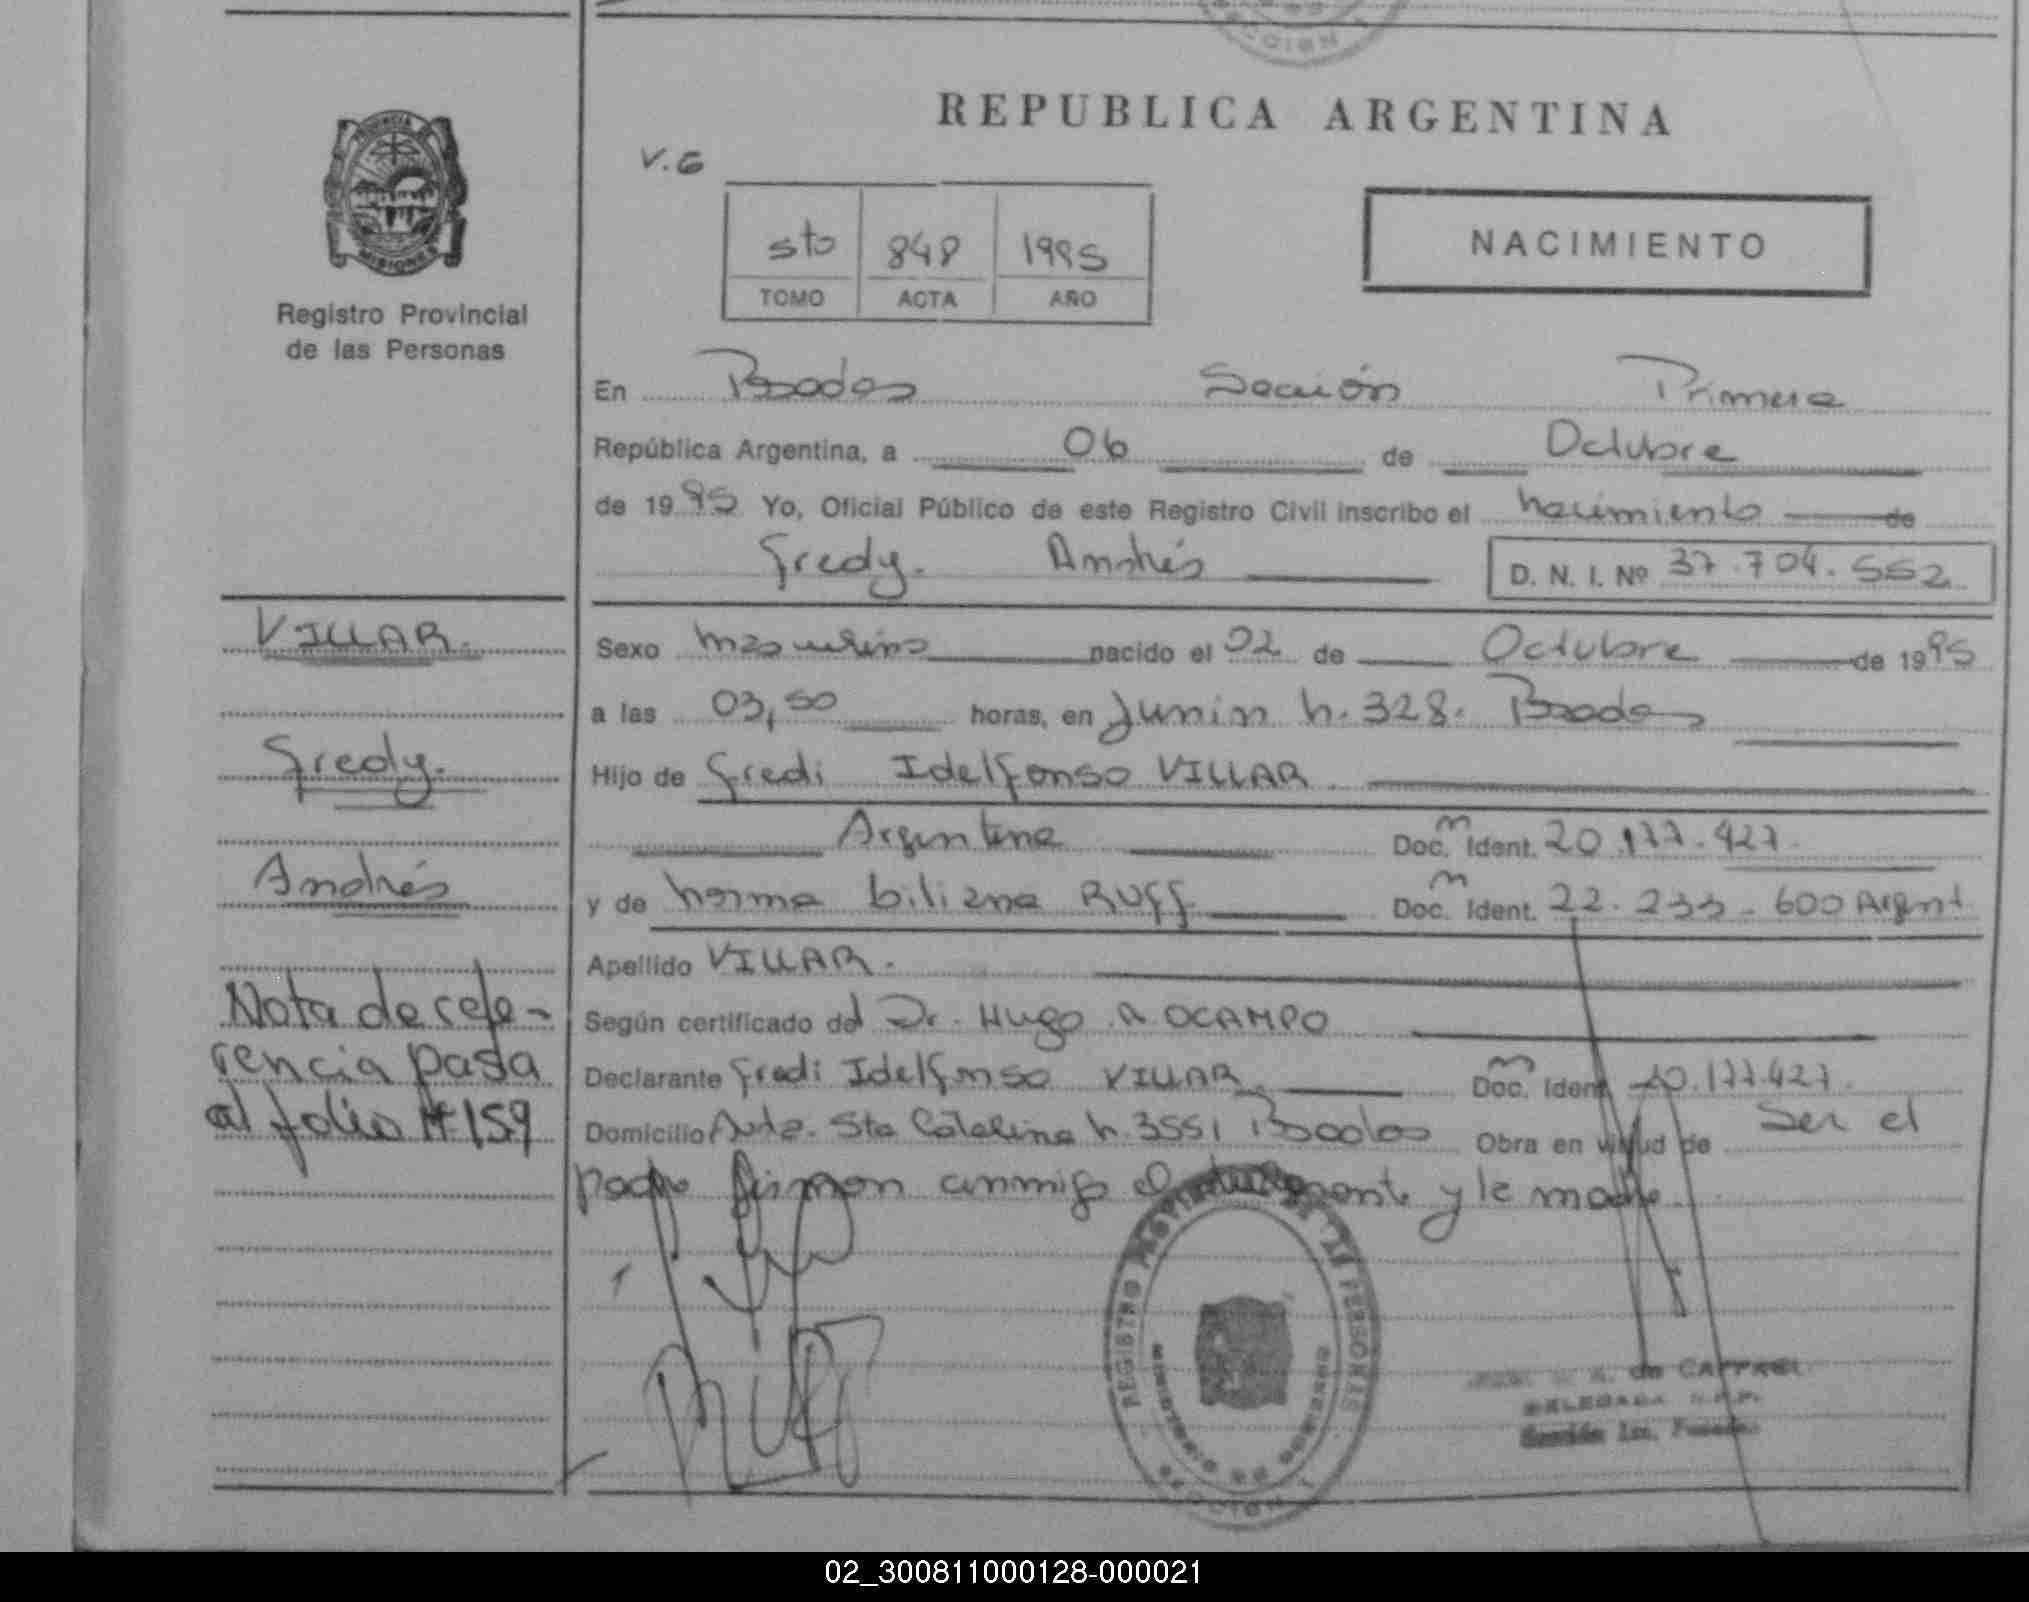 REPUBLICA ARGENTINA
PROVINCIA DE
MISIONES
Registro Provincial
de las Personas
V.G
5to 848 1995
TOMO ACTA AÑO
NACIMIENTO
En Posadas Sección Primera
República Argentina, a 06 de Octubre
de 1995 Yo, Oficial Público de este Registro Civil inscribo el nacimiento de
Fredy. Andrés D. N. I. Nº 37.704.552
VILLAR.
Sexo masculino nacido el 02 de Octubre de 1995
a las 03,50 horas, en Junin n. 328. Posadas
Fredy.
Hijo de Fredi Idelfonso VILLAR.
Argentina Doc. Ident. 20.177.427.
Andrés
y de Norma biliana RUFF Doc. Ident. 22.233.600 Argent
Apellido VILLAR.
Nota de refe-
Según certificado del Dr. Hugo A OCAMPO
rencia pasa
Declarante Fredi Idelfonso VILLAR Doc. Ident. 20.177.427.
al folio Nº 159
Domicilio Avda. Sta Catalina n. 3551 Posadas Obra en virtud de Ser el
padre firman conmigo el y la madre.
Ruff
REGISTRO PROVINCIAL DE LAS PERSONAS
MINISTERIO DE GOBIERNO
SECCION 1
de
DELEGADA R.P.P.
Sección 1ra. Posadas
02_300811000128-000021